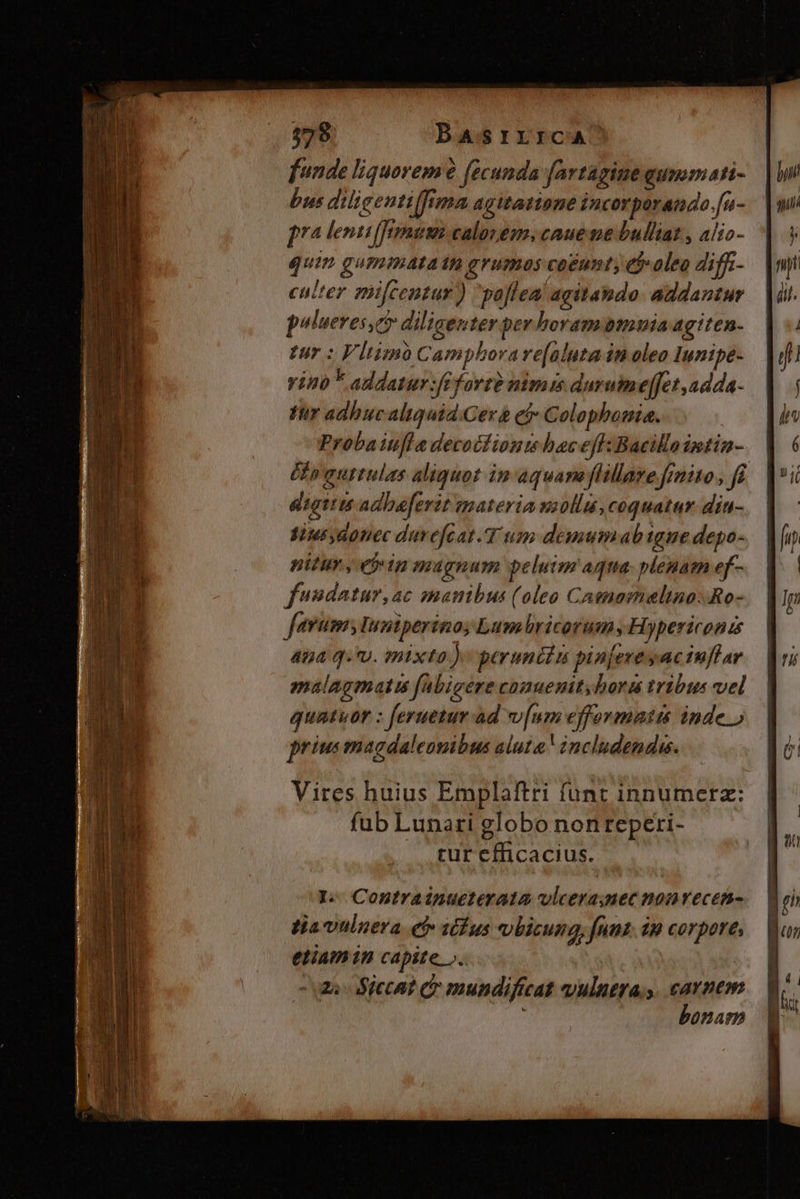 378 BASILICA
funde liquorem è ſecunda ſartagine gummati-
bus diligentiſſima agitatione incorporando ſu-
pra lentiſſimum calorem, caue ne bulliat, alio-
quin gummata in grumos coëunt, & oleo diffi-
culter miſcentur) poſtea agitando addantur
pulueres, & diligenter per horam omnia agiten-
tur: Vltimò Camphora reſoluta in oleo Iunipe-
rino * addatur: ſi fortè nimis durum eſſet, adda-
tur adhuc aliquid Ceræ & Colophoniæ.
Proba iuſtæ decoctionis hæc eſt: Bacillo intin-
cto guttulas aliquot in aquam ſtillare ſinito, ſi
digitis adhæſerit materia mollis, coquatur diu-
tius, donec dureſcat. Tum demum ab igne depo-
nitur, & in magnum peluim aqua plenam ef-
fundatur, ac manibus (oleo Camomelino: Ro-
ſarum, Iuniperino, Lumbricorum, Hypericonis
ana q. v. mixto) perunctis pinſere, ac inſtar
malagmatis ſubigere conuenit, horis tribus vel
quatuor: ſeruetur ad vſum efformatis inde
prius magdaleonibus aluta includendis.
Vires huius Emplaſtri ſunt innumeræ:
ſub Lunari globo non reperi-
tur efficacius.
1. Contra inueterata vlcera, nec non recen-
tia vulnera & ictus vbicunq; ſunt in corpore,
etiam in capite.
2. Siccat & mundificat vulnera, carnem
bonam